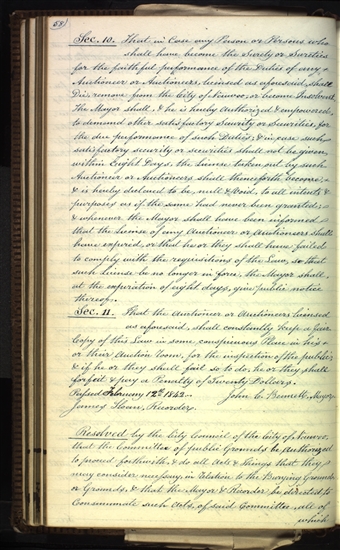 58)
Sec. 10. That in Case any Person or Persons who
shall have become the Surety or Sureties
for the faithful performance of the Duties of any
Auctioneer or Auctioneers, licensed as aforesaid, shall
Die, remove from the City of Nauvoo, or become Insolvent,
The Mayor shall, & he is hereby Authorized & empowered,
to demand other satisfactory Security or Securities, for
the due performance of such Duties; & in case such
satisfactory security or securities shall not be given,
within Eight Days, the license taken out by such
Auctioneer or Auctioneers shall thenceforth become,
& is hereby declared to be, null & Void, to all intents &
purposes as if the same had never been granted;
& whenever the Mayor shall have been informed
that the license of any Auctioneer or Auctioneers shall
have expired, or that he or they shall have failed
to comply with the requisitions of the Law, so that
such license be no longer in force, the Mayor shall,
at the expiration of eight days, give public notice
thereof.
Sec. 11. That the Auctioneer or Auctioneers licensed
as aforesaid, shall constantly keep a fair
Copy of this Law in some conspicuous Place in his
or their Auction Room, for the inspection of the public;
& if he or they shall fail so to do, he or they shall
forfeit & pay a Penalty of Twenty Dollars.
Passed February 12th 1842. John C. Bennett, Mayor
James Sloan, Recorder.
Resolved by the City Council of the City of Nauvoo,
that the Committee of public Grounds be Authorized
to proceed forthwith, & do all Acts & things that they
may consider necessary, in relation to the Burying Ground
or Grounds, & that the Mayor & Recorder be directed to
Consummate such Acts, of said Committee, all of
which